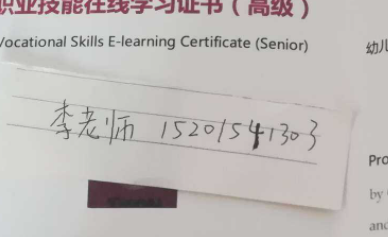 职业技能在线学习证书（高级）
Vocational Skills E-learning Certificate (Senior)
幼儿
李老师 15201541303
Pro
by
and